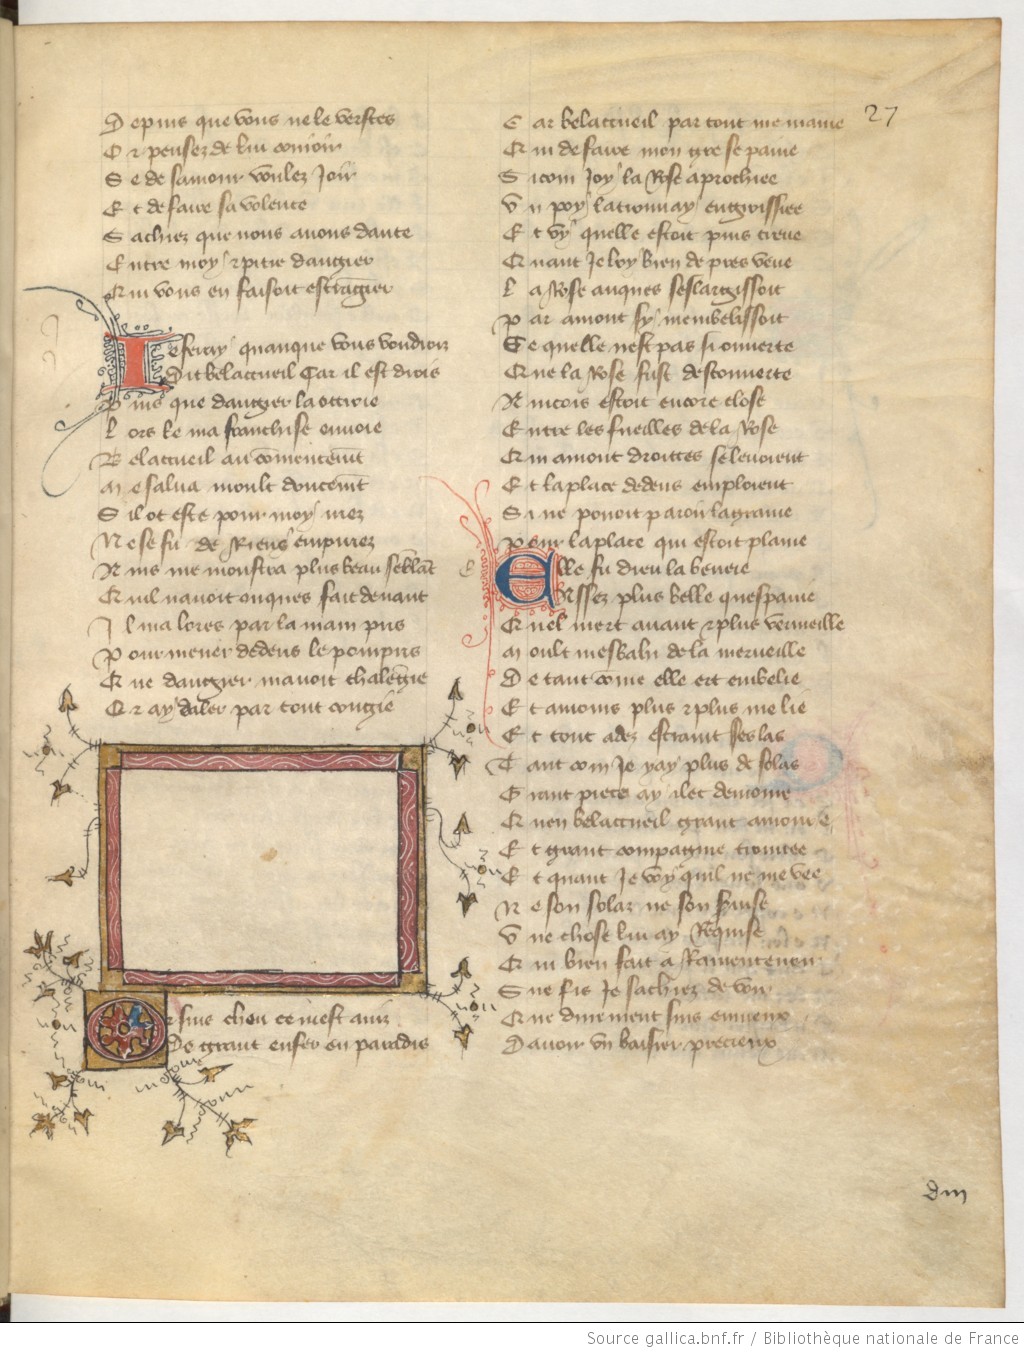 27
Depuis que vous ne le verstes
Or pensez de lui conioir
Se de samour voulez Joir
Et de faire sa volente
Sachiez que nous auons dante
Entre moy ⁊ pitie dangier
Qui vous en faisoit estrangier
Ie feray quanque vous voudroiz
Dit belaccueil Car il est drois
Puis que dangier la ottroie
Lors le ma franchise enuoie
Belaccueil au cōmencemt̄
Me salua moult doucemt̄
Sil ot este pour moy irez
Ne se fu de Riens empirez
Ains me monstra plus beau sēblāt
Quil nauoit onques fait deuant
Il ma lores par la main pris
Pour mener dedens le pourpris
Que dangier mauoit chalēgie
Or ay daler par tout congie
Or suis cheu ce mest auiz
De grant enfer en paradis
Car belaccueil par tout me maine
Qui de faire mon gre se paine
Si com Joy la Rose aprochiee
Vn poy la trouuay engroissiee
Et vy quelle estoit puis creue
Quant Je loy bien de pres veue
La Rose auques seslargissoit
Par amont sy membelissoit
Ce quelle nest pas si ouuerte
Que la Rose fust descouuerte
Aincois estoit encore close
Entre les fueilles de la Rose
Qui amont droittes se leuoient
Et la place dedens emploient
Si ne pouoit paroir la graine
Pour la place qui estoit plaine
e
Elle fu dieu la beneie
Assez plus belle quespanie
Quel niert auant ⁊ plus vermeille
Moult mesbahi de la merueille
De tant cōme elle ert embelie
Et amours plus ⁊ plus me lie
Et tout adez estraint ses las
Tant com Je yay plus de solas
Grant piece ay ilec demore
Quen belaccueil grant amour e
Et grant compagnie trouuee
Et quant Je voy quil ne me vee
Ne son solaz ne son seruise
Vne chose lui ay Requise
Qui bien fait a Ramenteuoir
Sire fis Je sachiez de voir
Que durement suis enuieux
Dauoir vn baisier precieux
Source gallica.bnf.fr / Bibliothèque nationale de France